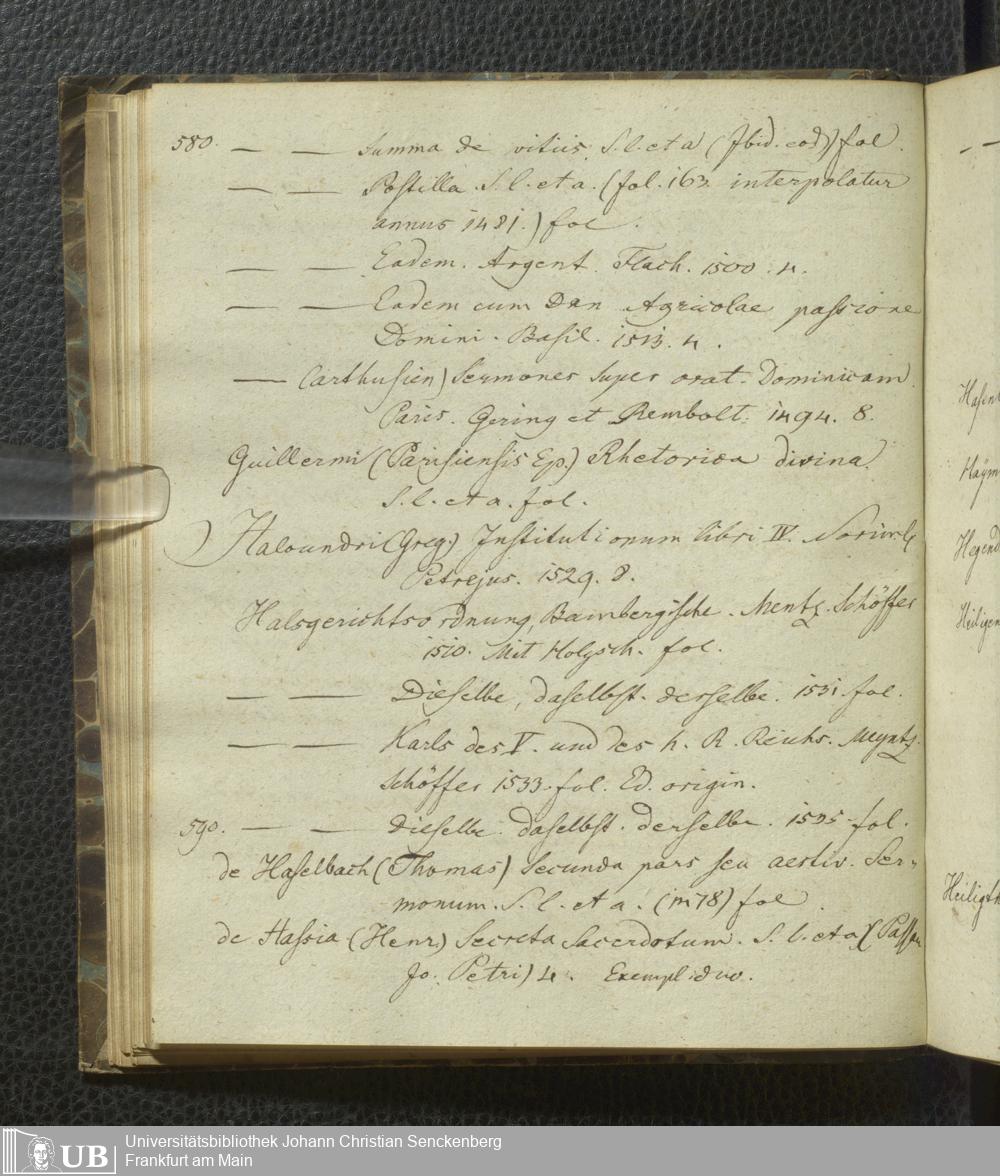 580. — — Summa de vitiis. S. l. et a (Ibid. eod) fol.
— — Postilla. S. l. et a. (fol. 163. interpolatur
annus 1481.) fol.
— — Eadem. Argent. Flach. 1500. 4.
— — Eadem cum Dan Agricolae passione
Domini. Basil. 1513. 4.
— (Carthusien) Sermones super orat. Dominicam.
Paris. Gering et Rembolt. 1494. 8.
Guillermi (Parisiensis Ep.) Rhetorica divina.
S. l. et a. fol.
Haloandri (Greg.) Institutionum libri IV. Norimb
Petrejus. 1529. 8.
Halsgerichtsordnung, Bambergische. Mentz. Schöffer
1510. Mit Holzsch. fol.
— — Dieselbe, daselbst. derselbe. 1531. fol.
— — Karls des V. und des h. R. Reichs. Meyntz.
Schöffer 1533. fol. Ed. origin.
590. — — Dieselbe. daselbst. derselbe. 1535. fol.
de Haselbach (Thomas) Secunda pars seu aestiv. Ser-
monum. S. l. et a. (1478) fol.
de Hassia (Henr.) Secreta Sacerdotum. S. l. et a) (Passau
Jo. Petri) 4. Exempl. duo.
Heiligen
UB
Universitätsbibliothek Johann Christian Senckenberg
Frankfurt am Main